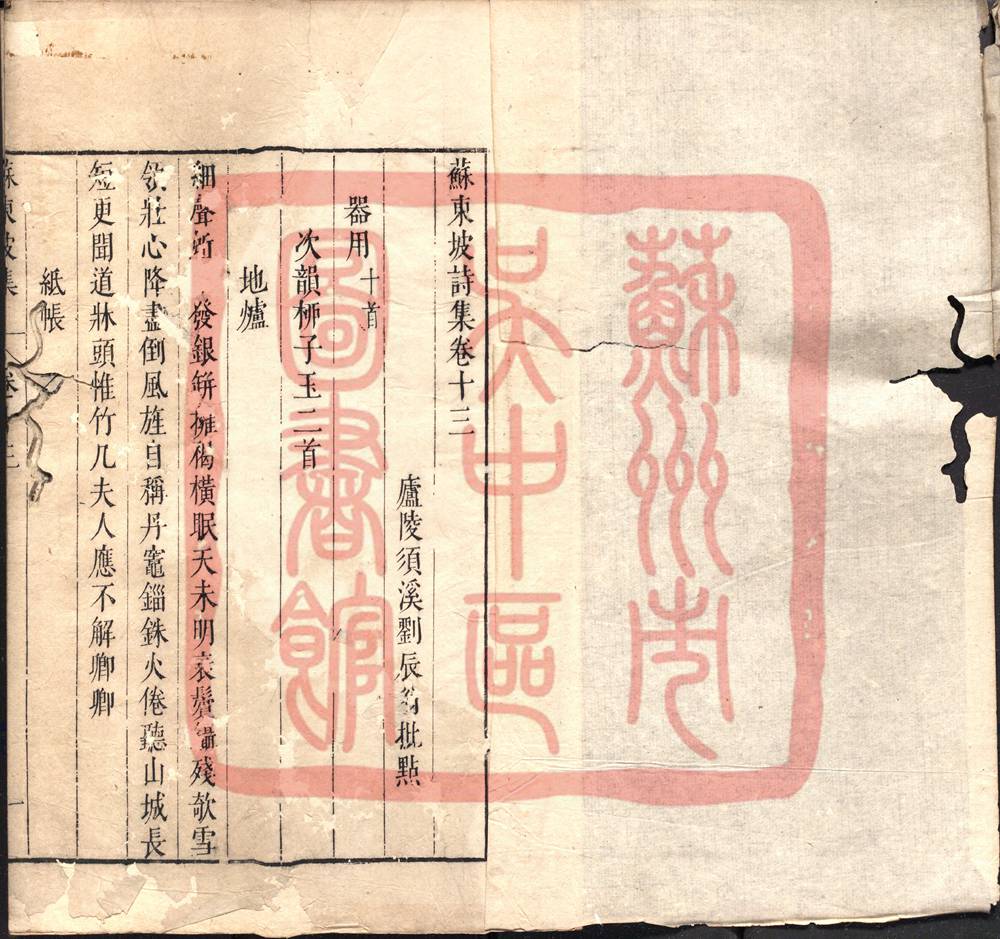 蘇東坡詩集卷十三
廬陵須溪劉辰翁批點
器用十首
次韻柳子玉二首
地爐
細聲蚓 發銀缾擁褐橫眠天未明衰鬢鑷殘欹雪
領壯心降盡倒風旌自稱丹竈錙銖火倦聽山城長
短更聞道牀頭惟竹几夫人應不解卿卿
紙帳
蘇東坡集 卷十三 一
蘇州市
吳中區
圖書館